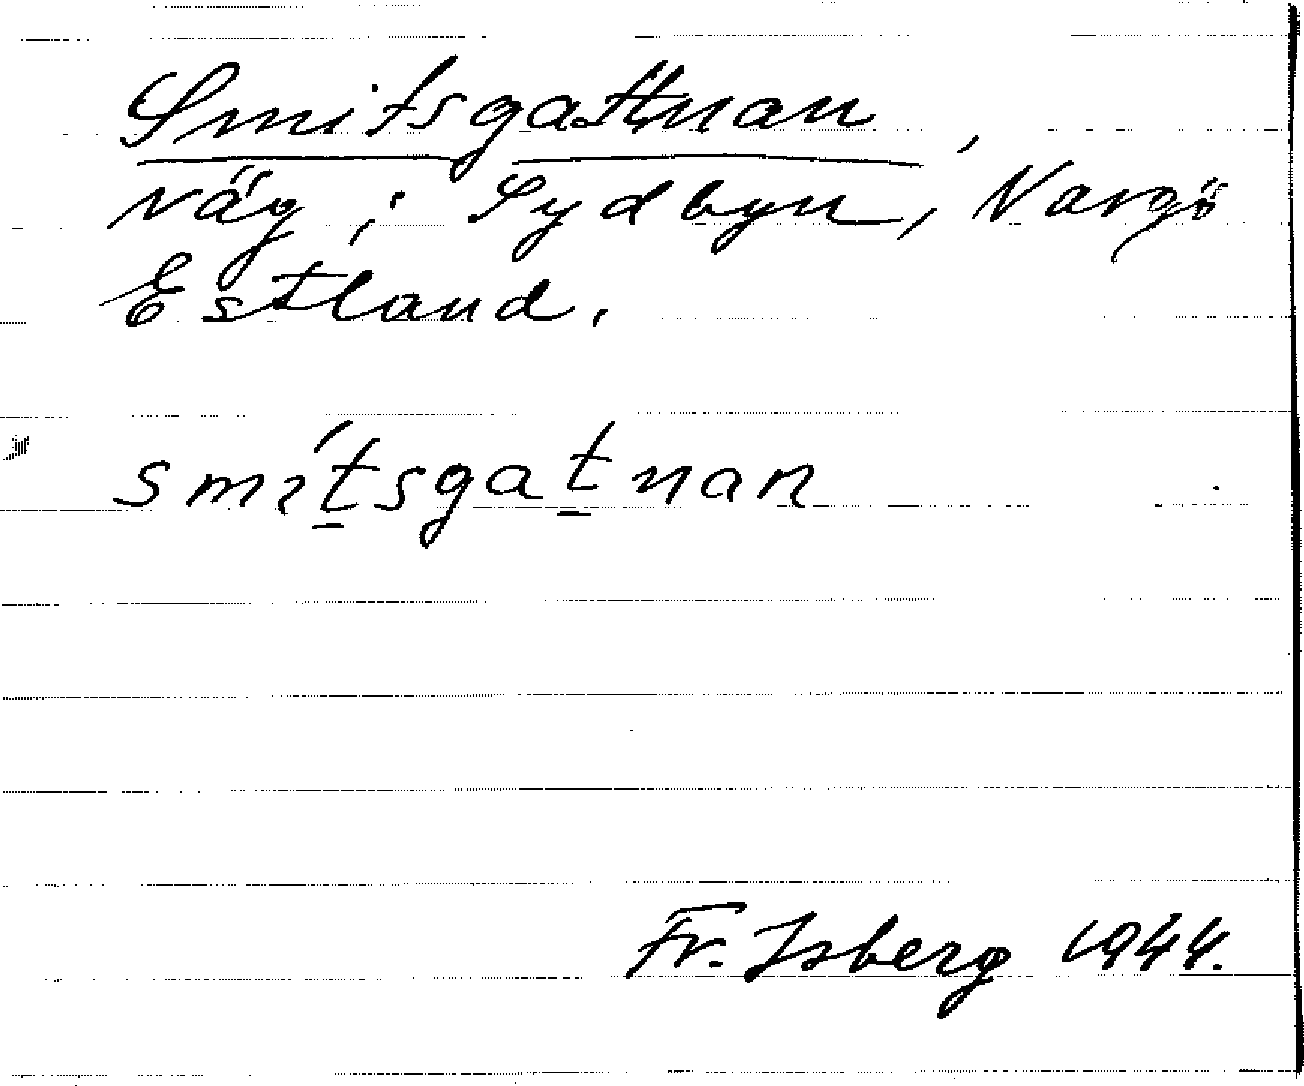 Smitsgattnan,
väg i Sydbyn, Nargö
Estland.
smítsgatnan
Fr. Isberg 1944.